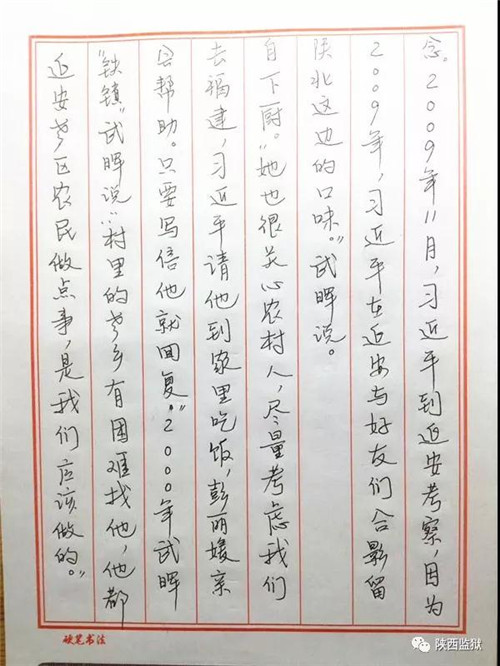 延安老区农民做点事，是我们应该做的。”
“铁镇”武晖说：“村里的老乡有困难找他，他都
会帮助。只要写信他就回复。”2000年武晖
去福建，习近平请他到家里吃饭，彭丽媛亲
自下厨。“她也很关心农村人，尽量考虑我们
陕北这边的口味。”武晖说。
2009年，习近平在延安与好友们合影留
念。2009年11月，习近平到延安考察，因为
硬笔书法
陕西监狱